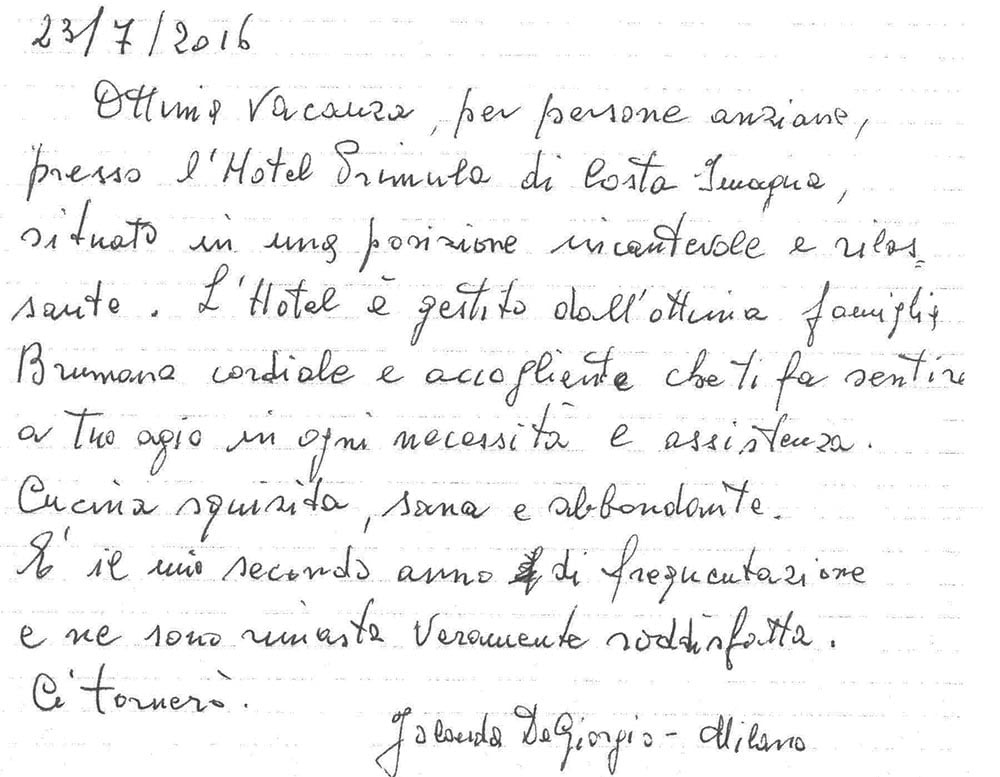 23/7/2016
Ottima vacanza, per persone anziane,
presso l'Hotel Primula di Costa Imagna,
situato in una posizione incantevole e rilas=
sante. L'Hotel è gestito dall'ottima famiglia
Brumana cordiale e accogliente che ti fa sentire
a tuo agio in ogni necessità e assistenza.
Cucina squisita, sana e abbondante.
E' il mio secondo anno di frequentazione
e ne sono rimasta veramente soddisfatta.
Ci tornerò.
Jolanda De Giorgio - Milano